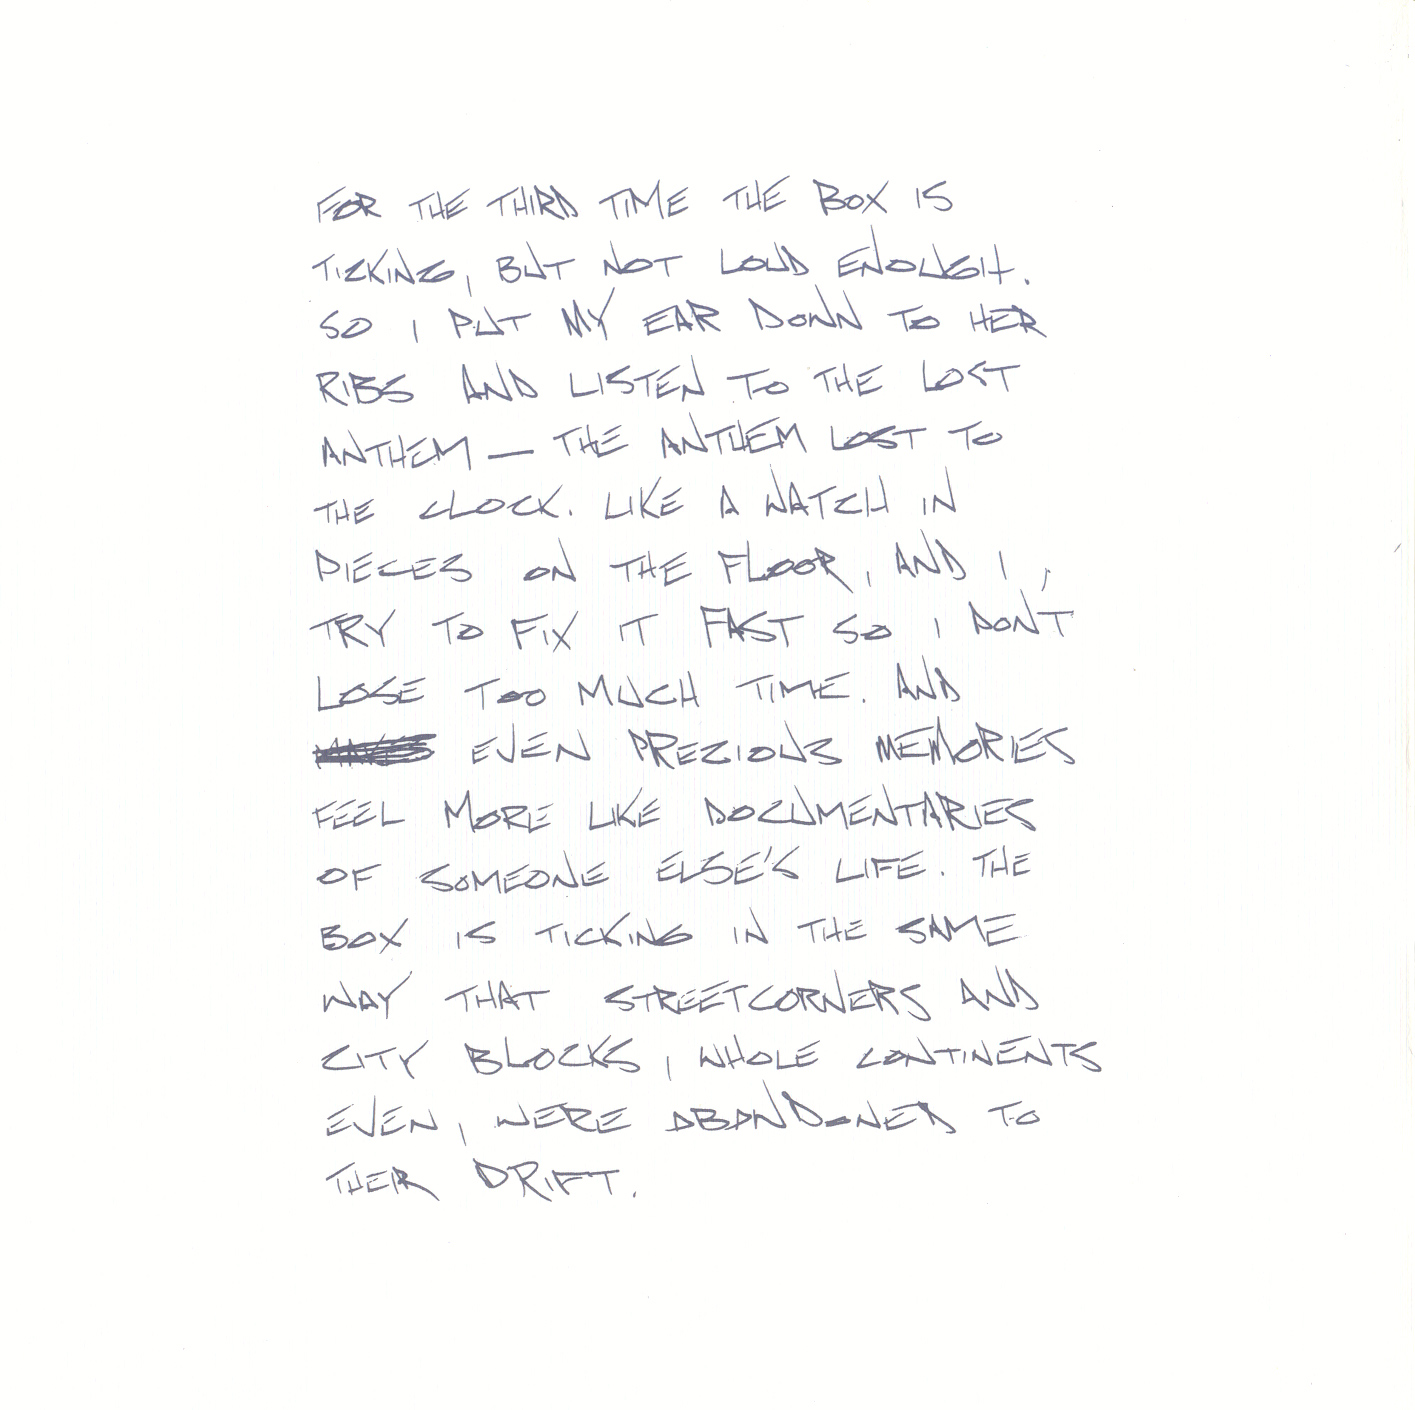 FOR THE THIRD TIME THE BOX IS
TICKING, BUT NOT LOUD ENOUGH.
SO I PUT MY EAR DOWN TO HER
RIBS AND LISTEN TO THE LOST
ANTHEM — THE ANTHEM LOST TO
THE CLOCK. LIKE A WATCH IN
PIECES ON THE FLOOR, AND I,
TRY TO FIX IT FAST SO I DON'T
LOSE TOO MUCH TIME. AND
EVEN PRECIOUS MEMORIES
FEEL MORE LIKE DOCUMENTARIES
OF SOMEONE ELSE'S LIFE. THE
BOX IS TICKING IN THE SAME
WAY THAT STREETCORNERS AND
CITY BLOCKS, WHOLE CONTINENTS
EVEN, WERE ABANDONED TO
THEIR DRIFT.